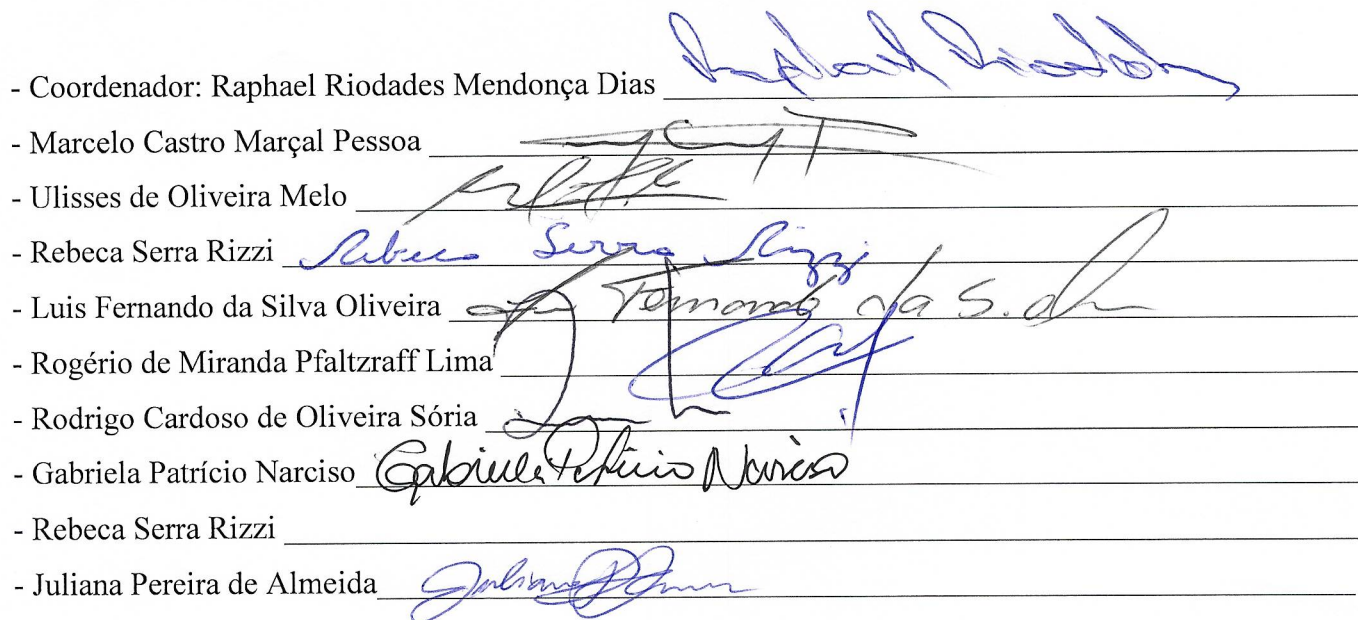 - Coordenador: Raphael Riodades Mendonça Dias Raphael Riodades
- Marcelo Castro Marçal Pessoa
- Ulisses de Oliveira Melo
- Rebeca Serra Rizzi Rebeca Serra Rizzi
- Luis Fernando da Silva Oliveira Fernando da S.
- Rogério de Miranda Pfaltzraff Lima
- Rodrigo Cardoso de Oliveira Sória
- Gabriela Patrício Narciso Gabriela Patrício Narciso
- Rebeca Serra Rizzi
- Juliana Pereira de Almeida Juliana